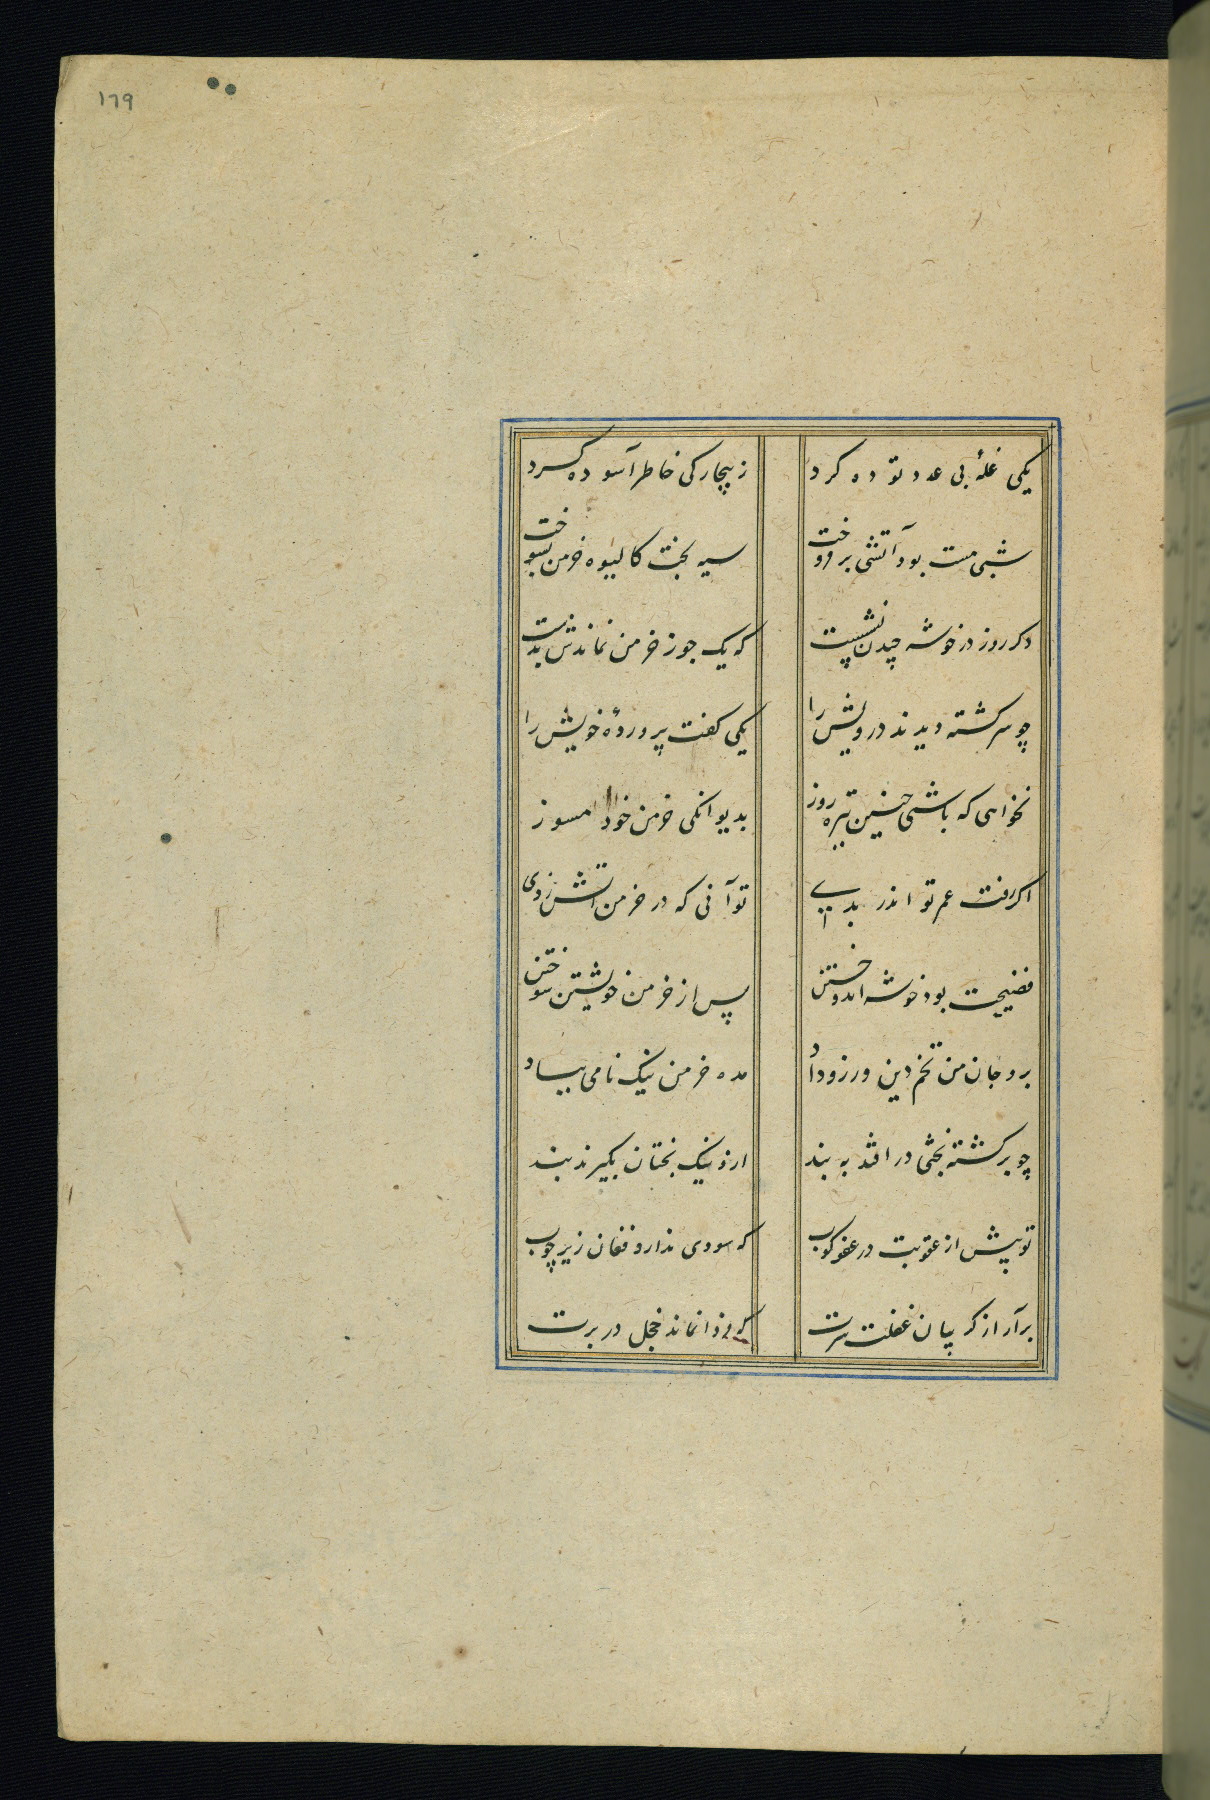 ۱۶۹
یکی غلهٔ بی عدد توده کرد زبیچارکی خاطر آسوده کرد
شبی مست بود آتشی بر فروخت سیه بخت کالیوه خرمن بسوخت
دکر روز در خوشه چیدن نشست که یک جو ز خرمن نماندش بدست
چو سرکشته دیدند درویش را یکی کفت پروردهٔ خویش را
نخواهی که باشی چنین تیره روز بدیوانکی خرمن خود مسوز
اکر رفت عمر تو اندر بدی تو آنی که در خرمن آتش زدی
فضیحت بود خوشه اندوختن پس از خرمن خویشتن سوختن
برو جان من تخم دین ورز و داد مده خرمن نیک نامی بباد
چو برکشته بختی در افتد به بند ازو نیک بختان بکیرند پند
تو پیش از عقوبت در عفو کوب که سودی ندارد فغان زیر چوب
برآر از کریبان غفلت سرت که فردا نماند خجل در برت